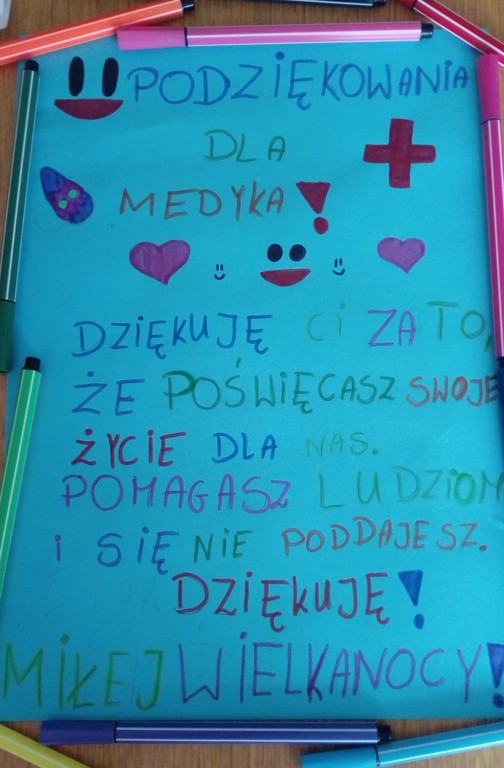 PODZIĘKOWANIA
DLA
MEDYKA!
DZIĘKUJĘ CI ZA TO,
ŻE POŚWIĘCASZ SWOJE
ŻYCIE DLA NAS.
POMAGASZ LUDZIOM
I SIĘ NIE PODDAJESZ.
DZIĘKUJĘ!
MIŁEJ WIELKANOCY!